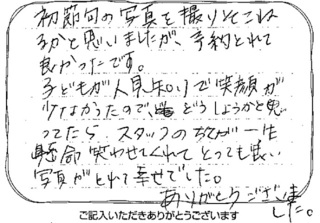 初節句の写真を撮りそこね
るかと思いましたが、予約とれて
良かったです。
子どもが人見知りで笑顔が
少なかったので、どうしようかと思
ってたら、スタッフの方が一生
懸命笑わせてくれてとっても良い
写真がとれて幸せでした。
ありがとうございま
した。
ご記入いただきありがとうございます